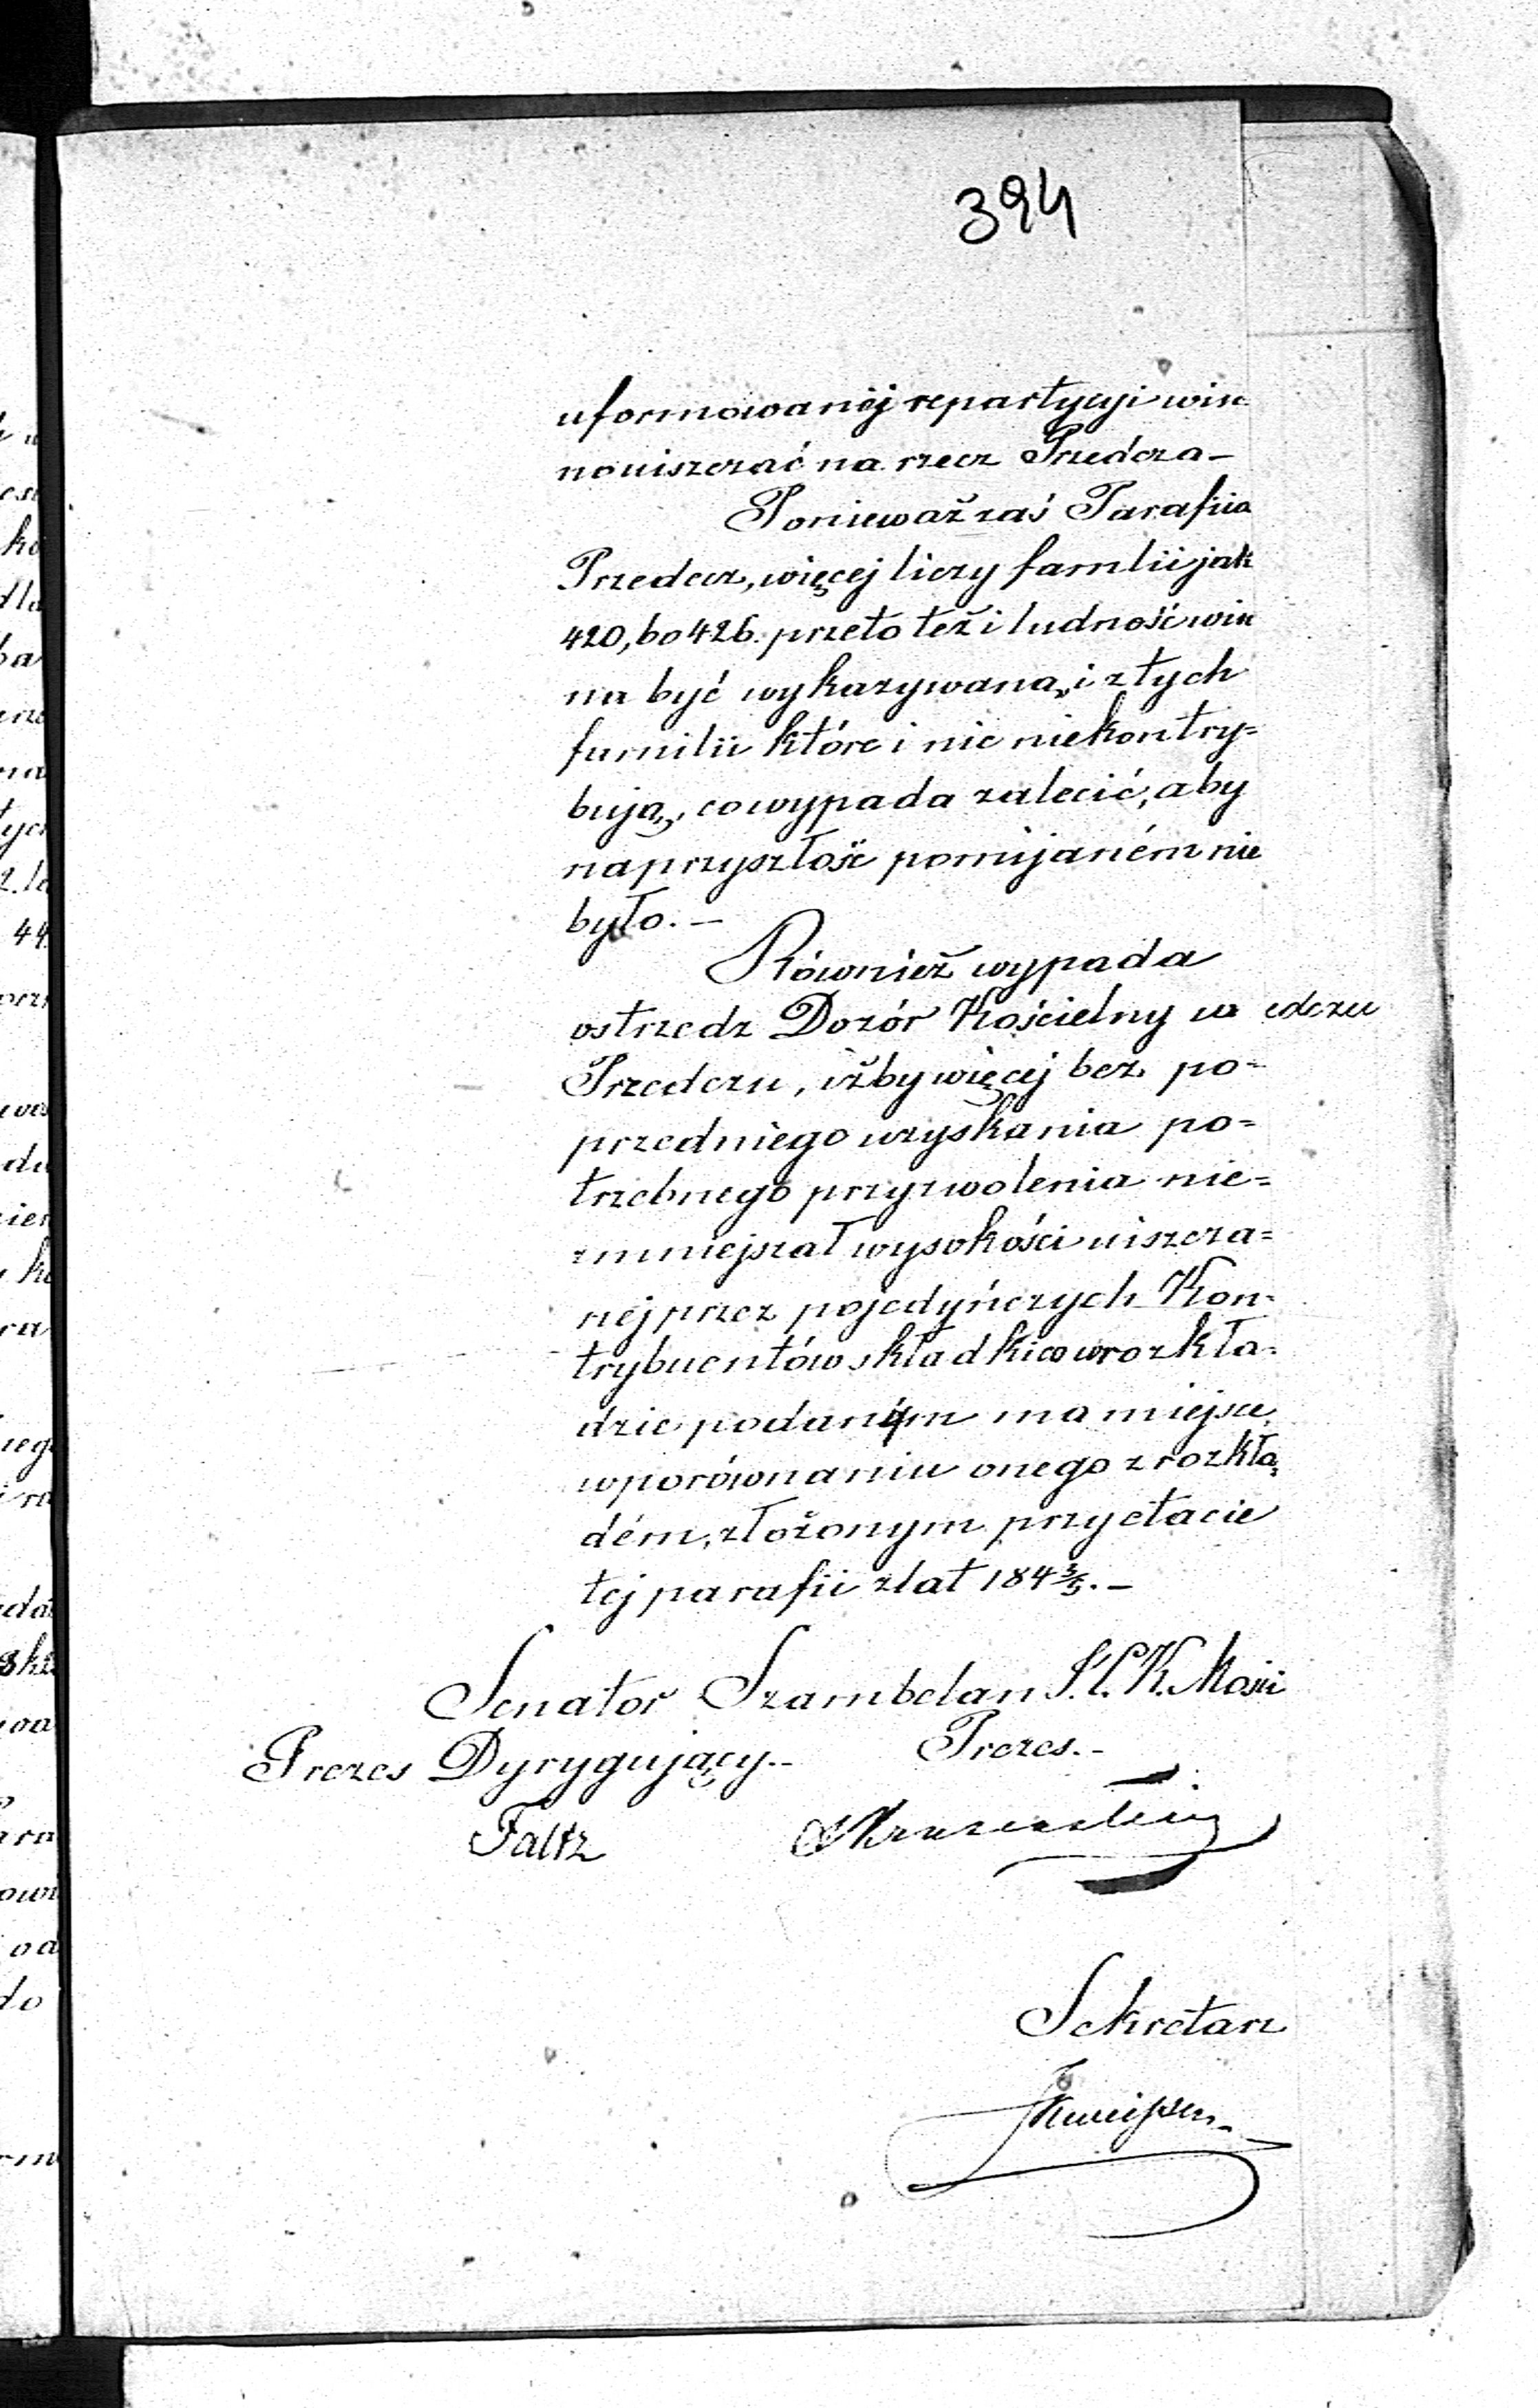 394
uformowanéj repartycyi win
no uiszczać na rzecz Przedcza –
Ponieważ zaś Parafiia
Przedecz, więcej liczy famlii jak
420, bo 426. przeto też i ludność win
na być wykazywana, i z tych
familii które i nic niekontry=
bują, co wypada zalecić, aby
naprzyszłość pomijaném nie
było. –
Również wypada
ostrzedz Dozór Kościelny w edczu
Przedczu, iżby więcej bez po=
przedniego uzyskania po=
trzebnego przyzwolenia nie=
zmniejszał wysokości uiszcza=
néj przez pojedyńczych Kon=
trybuentów składki co w rozkła=
dzie podanym ma miejsce,
w porównaniu onego z rozkła
dém, złożonym przy etacie
tej parafii z lat 184 3/5. –
Senator Szambelan J. C. K. Mości
Prezes Dyrygujący. – Prezes. –
Faltz
Sekretarz